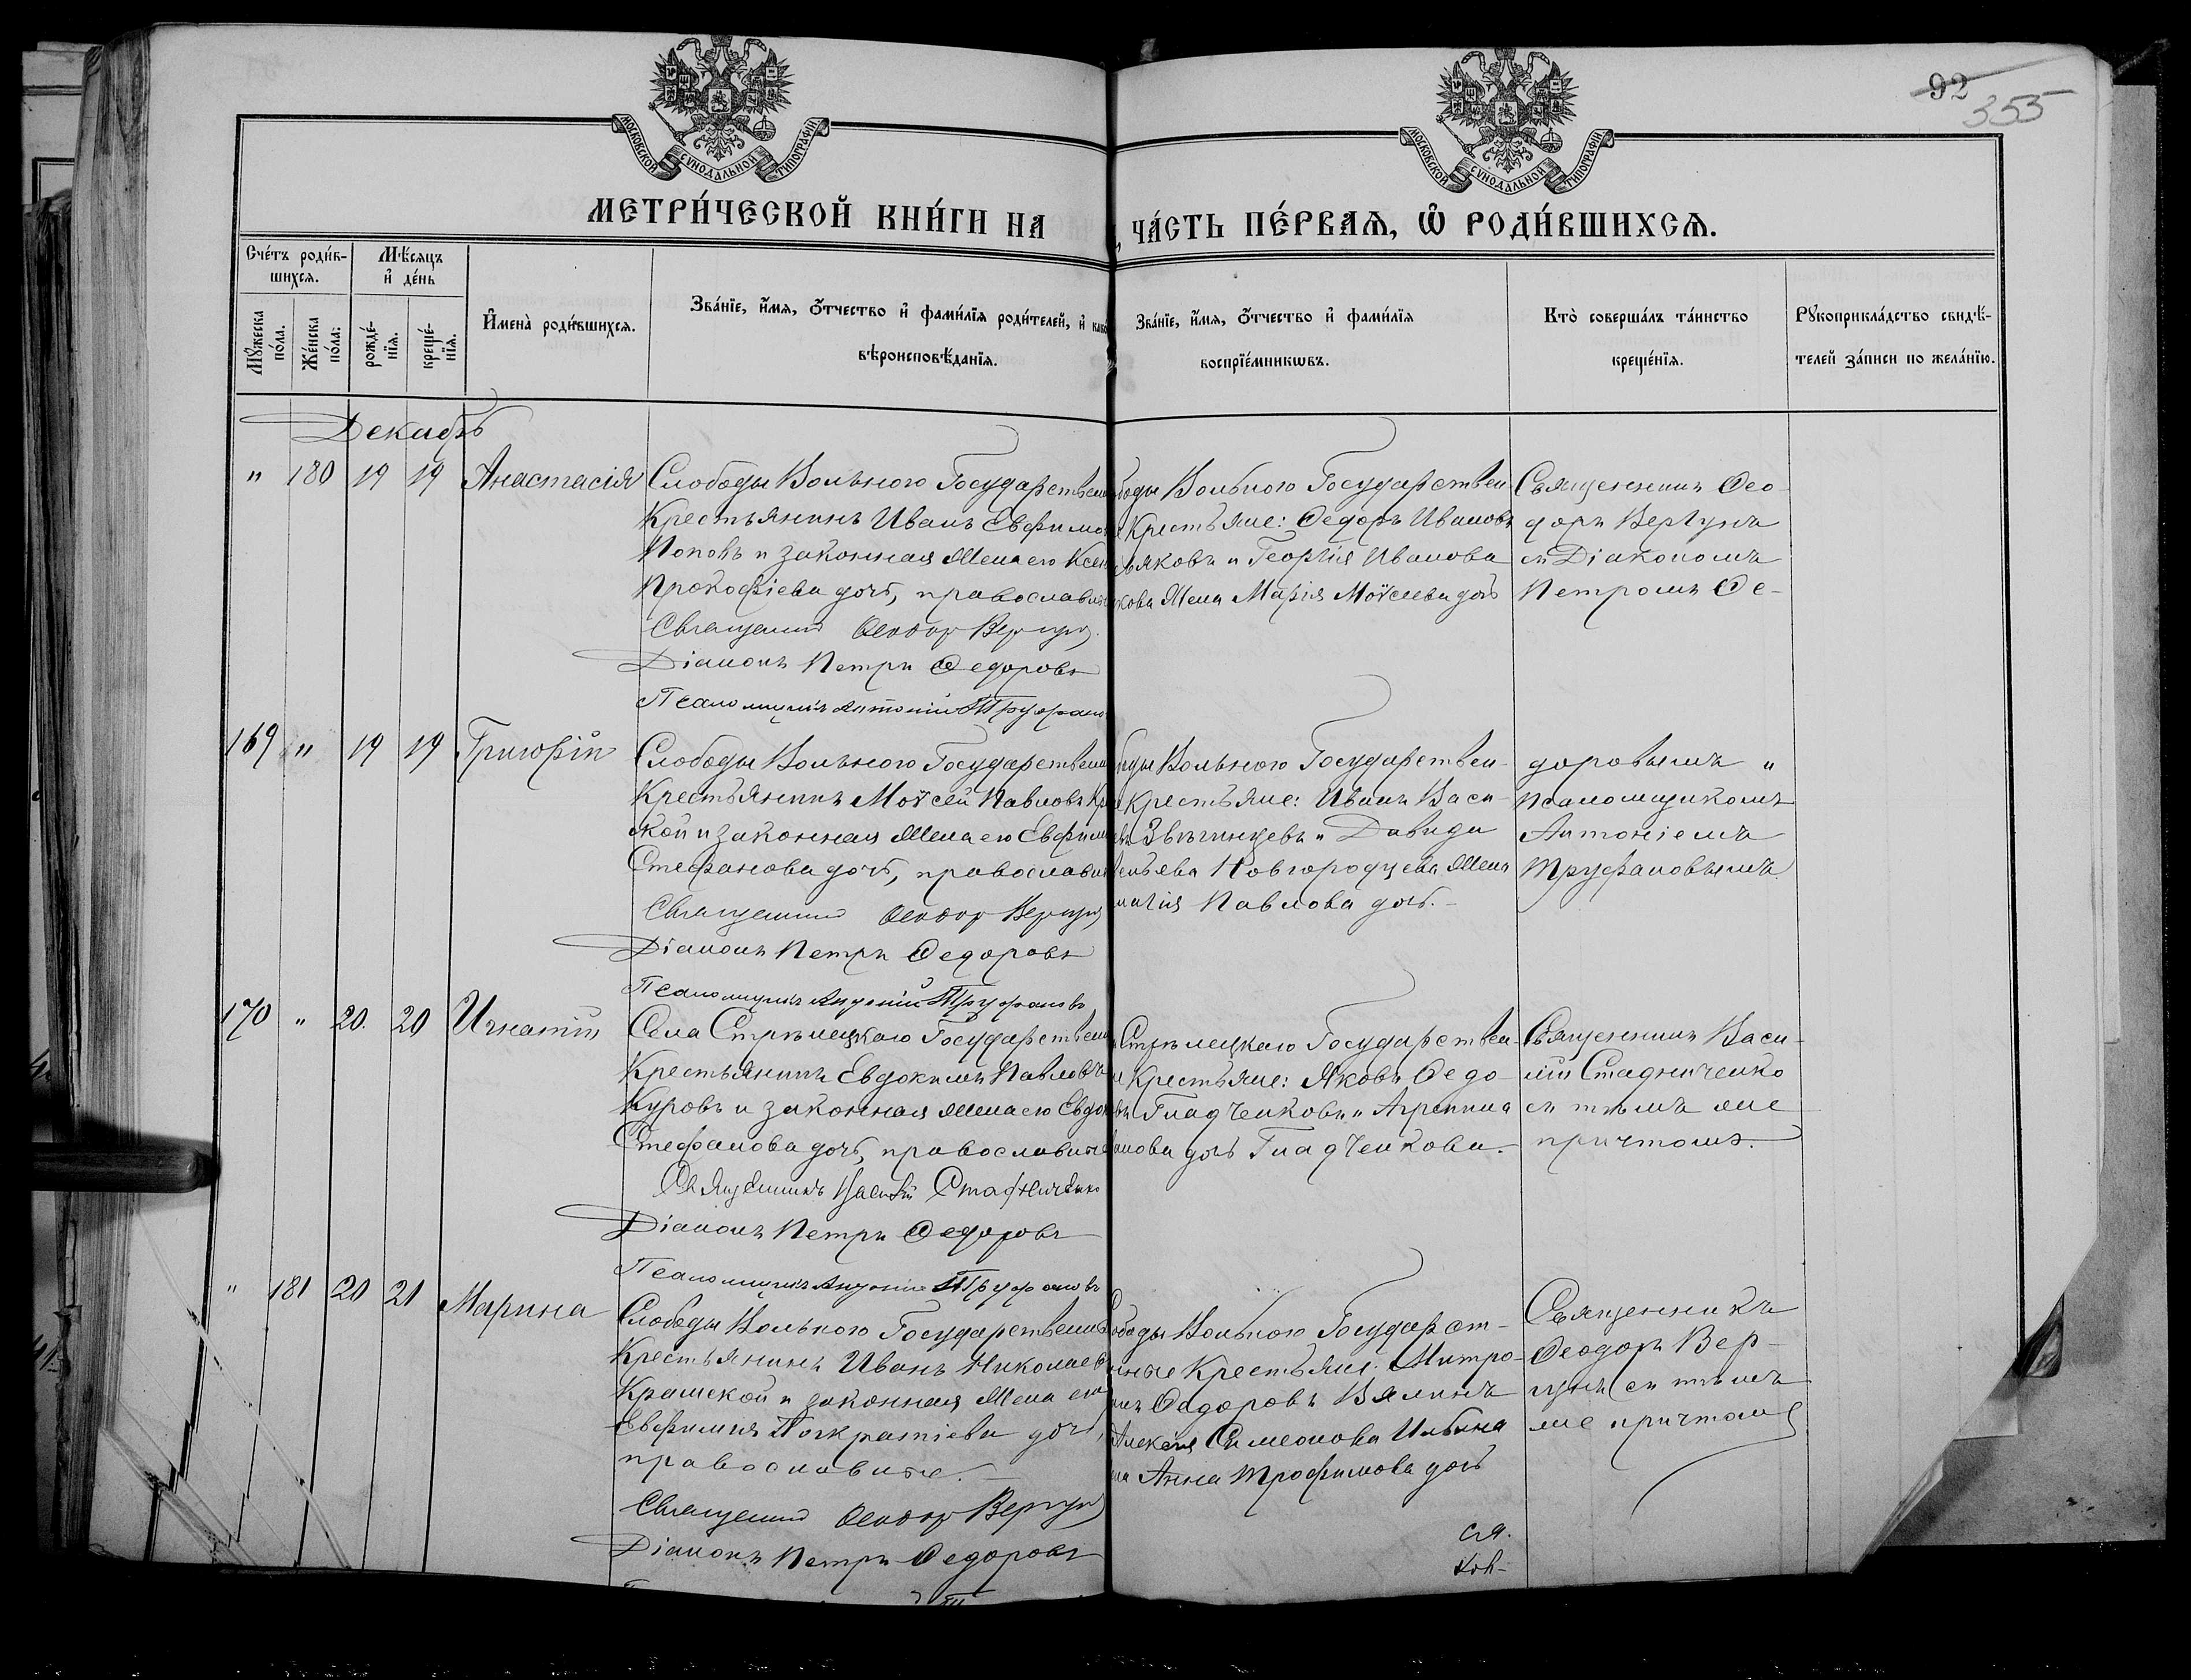 92
355
МОСКОВСКОЙ СѴНОДАЛЬНОЙ ТИПОГРАФІИ
МОСКОВСКОЙ СѴНОДАЛЬНОЙ ТИПОГРАФІИ
МЕТРИ́ЧЕСКОЙ КНИ́ГИ НА
ЧА́СТЬ ПЕ́РВАѦ, Ѡ҆ РОДИ́ВШИХСѦ.
Сче́тъ роди́в-
шихся.
Мѣ́сяцъ
и҆ де́нь
Мꙋ́жеска
по́ла.
Же́нска
по́ла.
рожде́-
нїя.
креще́-
нїя.
И҆мена̀ роди́вшихся.
Зва́нїе, и҆́мя, ѻ҆́тчество и҆ фами́лїя роди́телей, и҆
вѣроисповѣ́данїя.
Зва́нїе, и҆́мя, ѻ҆́тчество и҆ фами́лїя
воспрїе́мникѡвъ.
Кто̀ соверша́лъ та́инство
креще́нїя.
Рꙋкоприкла́дство свидѣ́-
телей за́писи по жела́нїю.
Декабрь
" 180 19 19 Анастасія
Слободы Вольного Государствен
Крестьянинъ Иванъ Евфимов
Поповъ и законная жена его Ксен
Прокофіева дочь, православн
Священник Феодор Вергун
Діаконъ Петръ Федоровъ
Псаломщикъ Антоній Труфано
боды Вольного Государствен-
Крестьяне: Федоръ Ивановъ
ьяковъ и Георгія Иванова
кова жена Марія Моѵсеева дочь
Священникъ Фео-
доръ Вергунъ
съ Діакономъ
Петромъ Фе-
169 " 19 19 Григорій
Слободы Вольного Государствен
Крестьянинъ Моѵсей Павловъ Кра
ской и законная жена его Евфим
Стефанова дочь, православн
Священник Феодор Вергун
Діаконъ Петръ Федоровъ
Псаломщикъ Антоній Труфановъ
боды Вольного Государствен-
Крестьяне: Иванъ Васи-
въ Звягинцевъ и Давида
ьева Новгородцева жена
Павлова дочь.
доровымъ и
Псаломщикомъ
Антоніемъ
Труфановымъ
170 " 20. 20 Игнатій
Села Стрѣлецкаго Государствен
Крестьянинъ Евдокимъ Павловъ
Куровъ и законная жена его Евдок
Стефанова дочь, православные
Священникъ Василій Стадниченко
Діаконъ Петръ Федоровъ
Псаломщикъ Антоній Труфановъ
Стрѣлецкаго Государствен-
Крестьяне: Яковъ Федо-
въ Гладченковъ и Агрипина
анова дочь Гладченкова.
Священникъ Васи-
лій Стадниченко
съ тѣмъ же
причтомъ.
" 181 20 21 Марина
Слободы Вольного Государственн
Крестьянинъ Иванъ Николаев
Крамской и законная жена его
Евфимія Панкратіева дочь,
православные.
Священник Феодор Вергун
Діаконъ Петръ Федоровъ
ободы Вольного Государст-
нные Крестьяне: Митро-
Федоровъ Вялинъ
Алексѣя Симеонова Ильина
на Анна Трофимова дочь
Священникъ
Феодоръ Вер-
гунъ съ тѣмъ
же причтомъ
ся.
ков-